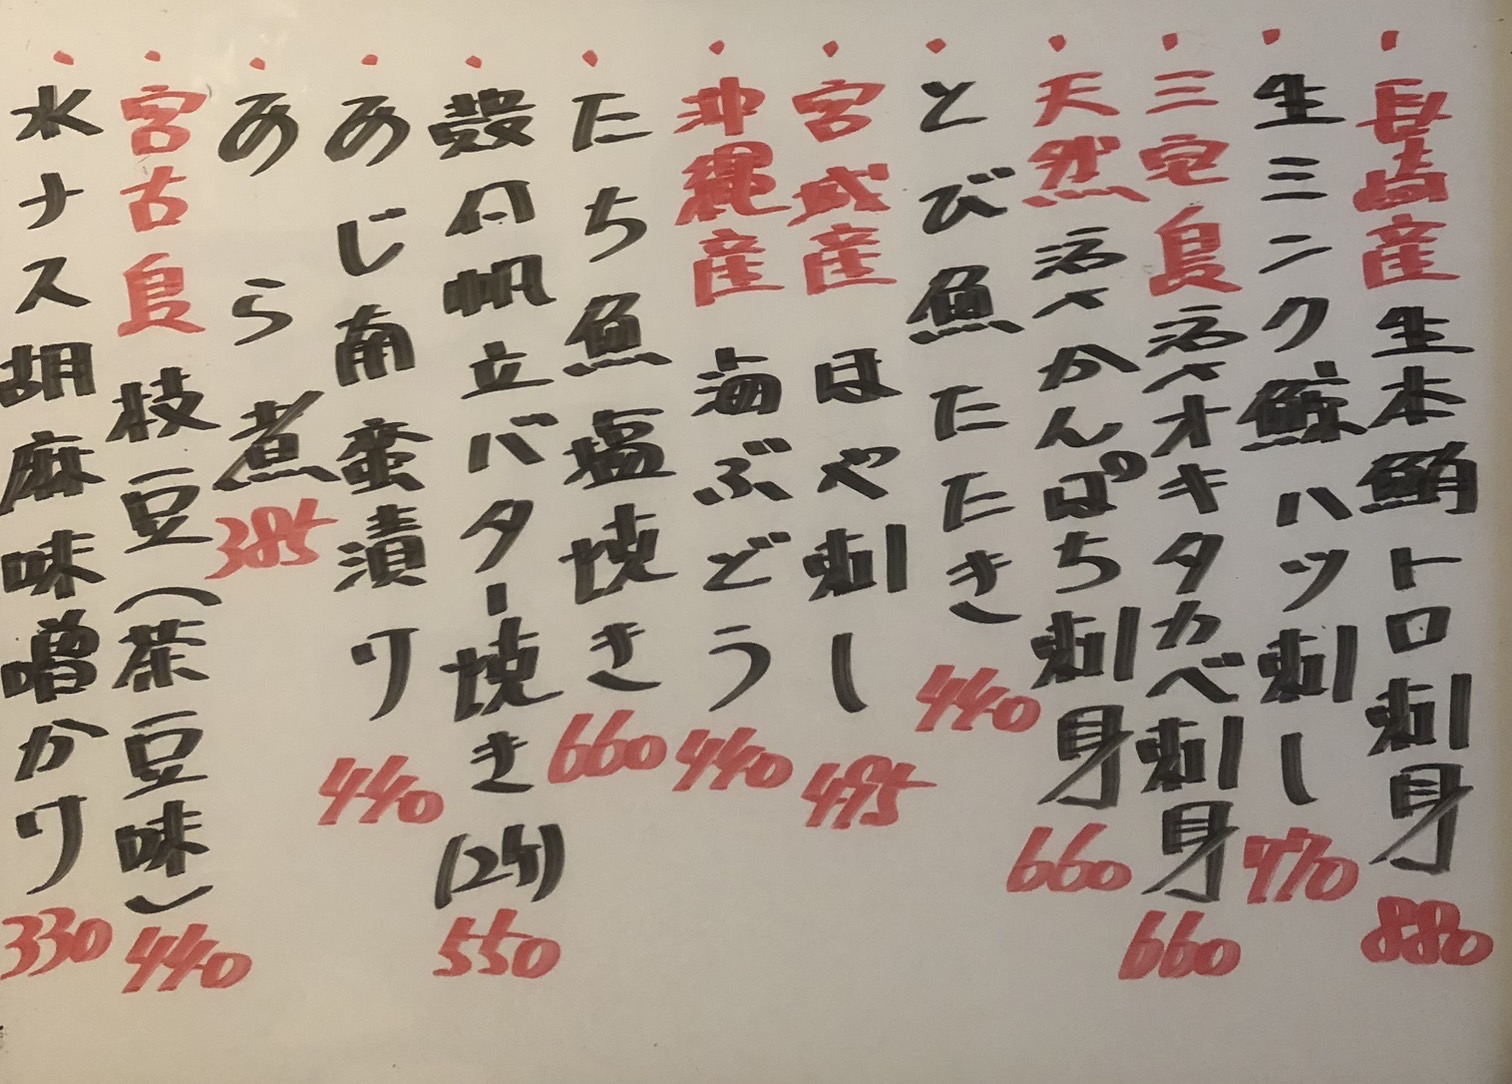 ・長崎産生本鮪トロ刺身 880
・生ミンク鯨ハツ刺し 770
・三宅島活〆オキタカベ刺身 660
・天然活〆かんぱち刺身 660
・とび魚たたき 440
・宮城産ほや刺し 495
・沖縄産海ぶどう 440
・たち魚塩焼き 660
・殻付帆立バター焼き(2ケ) 550
・あじ南蛮漬け 440
・あら煮 385
・宮古島枝豆(茶豆味) 440
・水ナス胡麻味噌かけ 330